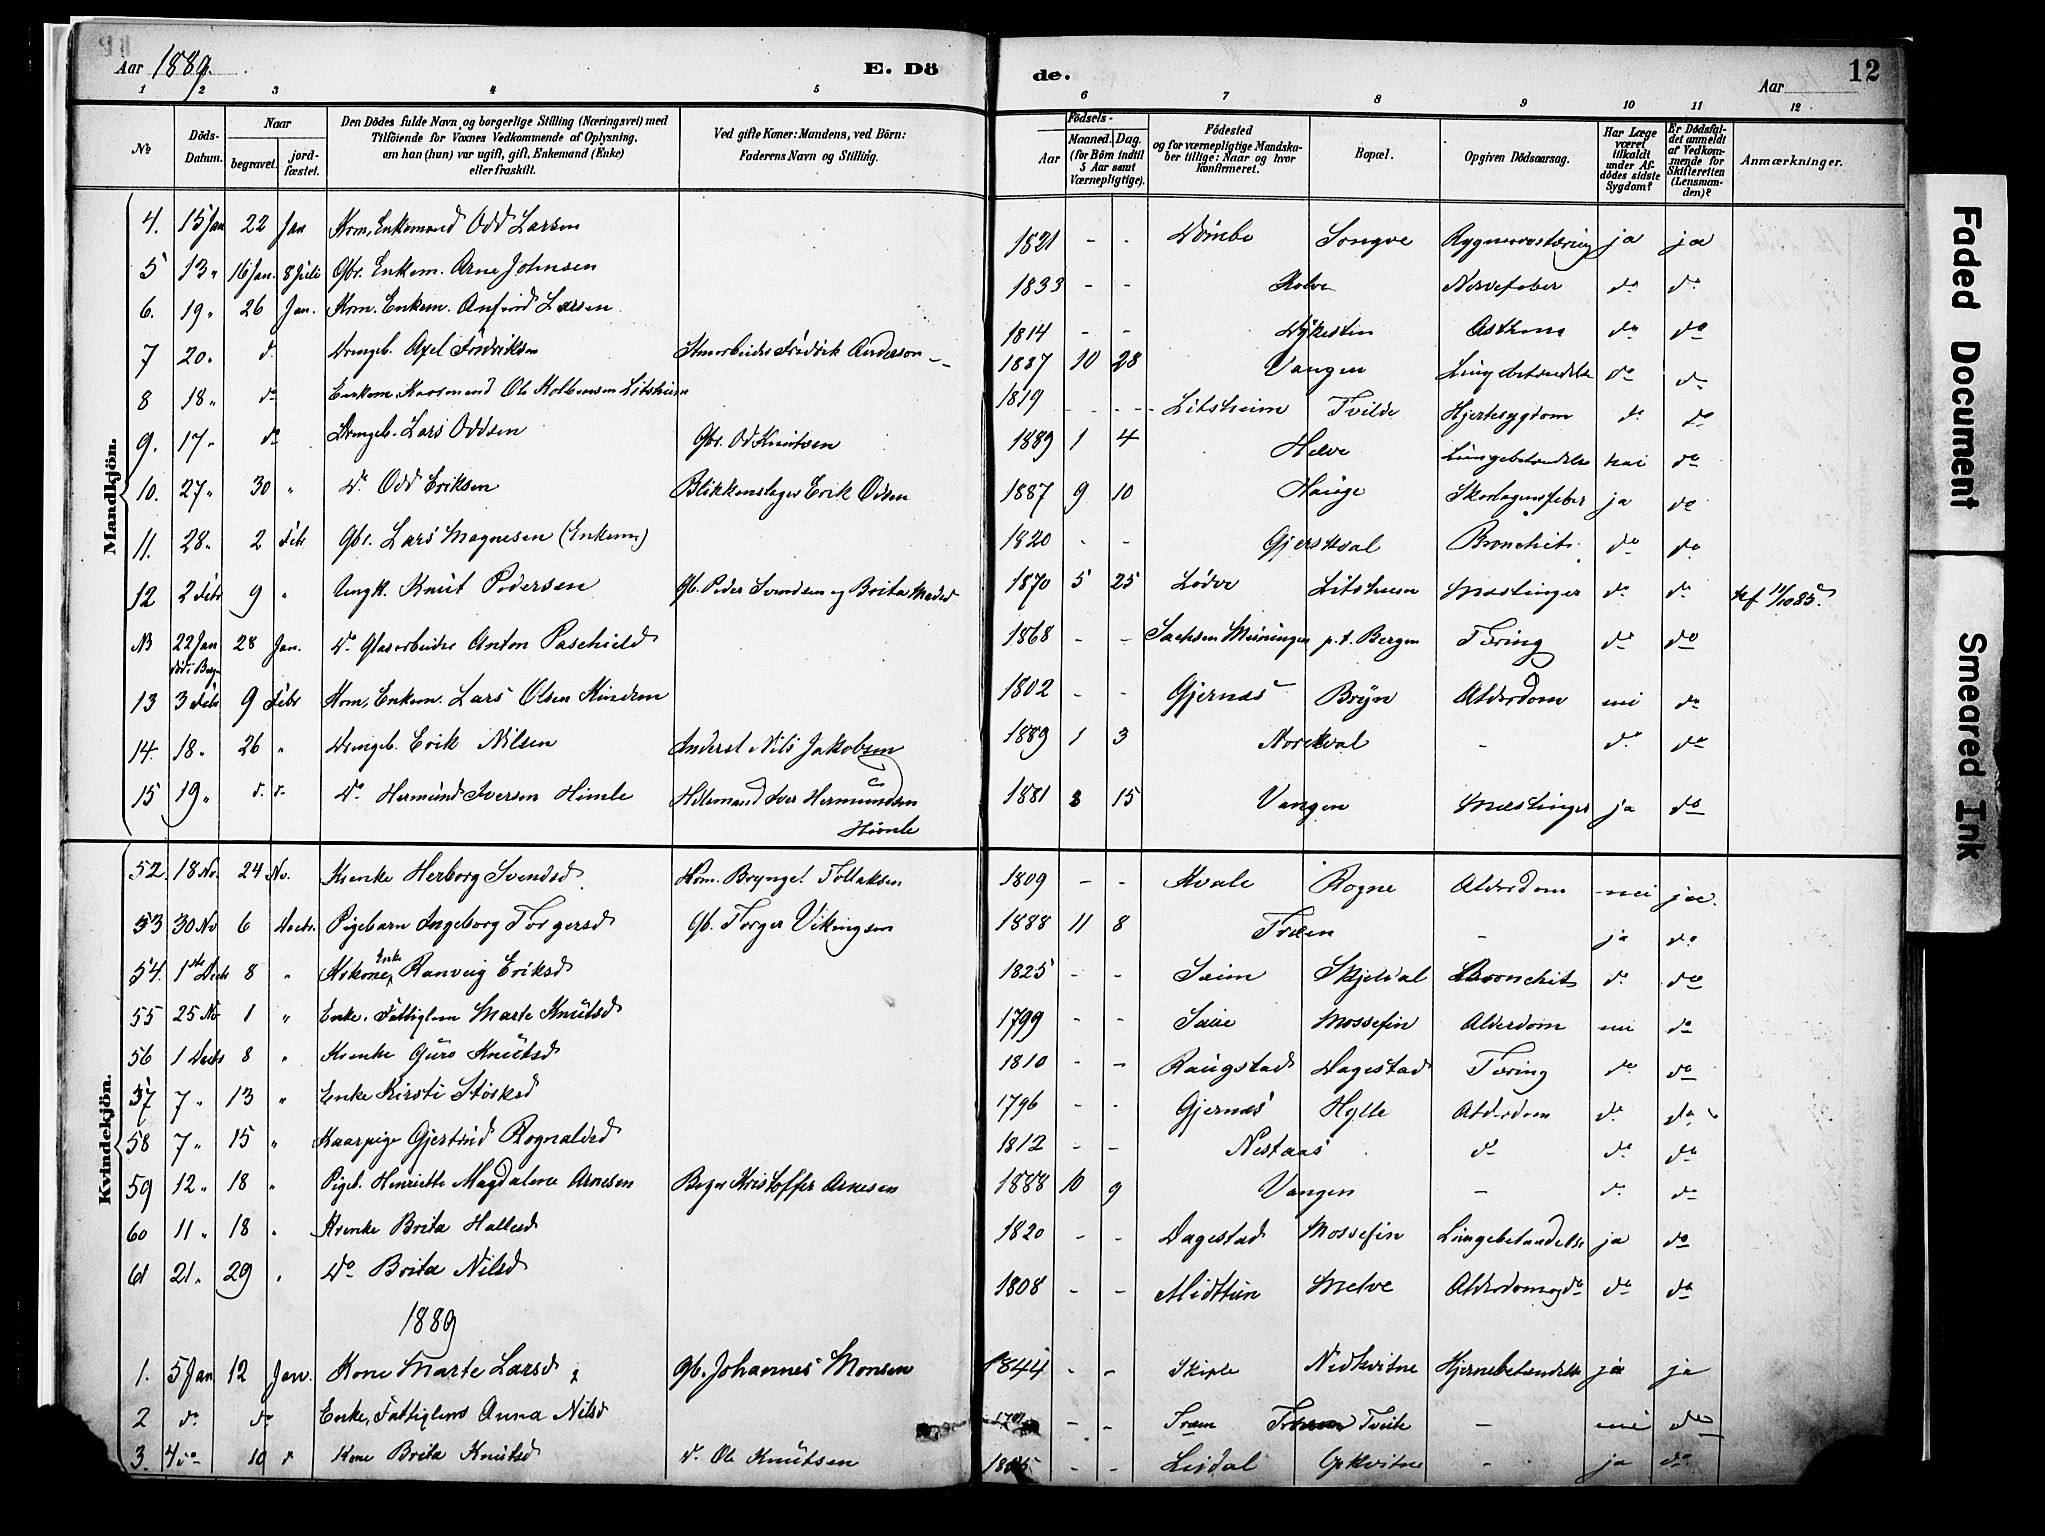 Aar 1889. E. Döde. Aar 12
1 2 3 4 5 6 7 8 9 10 11 12
No Döds-Datum. Naar begravet. jordfæstet. Den Dödes fulde Navn og borgerlige Stilling (Næringsvei) med Tilföiende for Voxnes Vedkommende af Oplysning, om han (hun) var ugift, gift, Enkemand (Enke) eller fraskilt. Ved gifte Koner: Mandens, ved Börn: Faderens Navn og Stilling. Födsels- Aar Maaned. Dag. (for Börn indtil 5 Aar samt Værnepligtige). Födested og for værnepligtige Mandskaber tillige: Naar og hvor konfirmeret. Bopæl. Opgiven Dödsaarsag. Har Læge været tilkaldt under Afdödes sidste Sygdom? Er Dödsfaldet anmeldt af Vedkommende for Skifteretten (Lensmanden)? Anmærkninger.
Mandkjön.
4. 15 Jan 22 Jan Kom. Enkemand Odd Larsen 1821 - - Dömbe Songve Rygmarvstæring ja ja
5 13 " 16 Jan. 8 Juli Gbr. Enkem. Arne Johnsen 1833 - - Rolve Nervefeber do do
6. 19 " 26 Jan. Kom. Enkem. Anfind Larsen 1814 - - Dykesten Asthma do do
7 20 " d. Drengeb. Axel Fredriksen Fredrik Anderson 1887 10 28 Vangen Lungebetændelse do do
8 18 " do Enkem. Ole Kolbensen Litsheim 1819 - - Litsheim Tvilde Hjertesygdom do do
9. 17 " do Drengeb. Lars Oddsen Gbr. Od Knutsen 1889 1 4 Helve Lungebetændelse nei do
10. 27 " 30 " do Odd Eriksen Blikkenslager Erik Odsen 1887 9 10 Hauge Skarlagensfeber ja do
11. 28 " 2 Febr Gbr. Lars Magnesen (Enkem) 1820 - - Gjerskval Bronchit. do do
12 2 Febr 9 " Ungk. Knut Pedersen Gb. Peder Svendsen og Brita Madsd 1870 5 25 Lödve Litsheim Mæslinger do do Kf 11/10 85.
NB 22 Jan 28 Jan. do Glasarbeider Anton Paschield 1868 - - Sachsen Meiningen p.t. Bergen Tæring do do
död i Bergen
13 3 Febr 9 Febr Kom. Enkem. Lars Olsen Kindem 1802 - - Gjernæs Bryn Alderdom nei do
14. 18 " 26 " Drengeb. Erik Nilsen Nils Jakobsen 1889 1 3 Norekval - do do
15 19 " d. d. do Hermund Iversen Himle Handelsmand Iver Hermundsen 1881 3 15 Vangen Mæslinger ja do
Himle
Kvindekjön.
52. 18 No. 24 No. Kienke Herborg Svendsd Kom. Brynge. Tollaksen 1809 - - Kvale Rogne Alderdom nei ja.
53 30 No 6 Decbr. Pigebarn Ingeborg Torgersd Gb. Torger Vikingson 1888 11 8 Træen - ja do
54. 1ste Decbr 8 " Enke Ranveig Eriksd 1825 - - Seim Skjelval Bronchit do do
55 25 No 1 " Enke. Fattiglem Marte Knutsd 1799 - - Saue Mossefin Alderdom nei do
56 1 Decbr 8 " Kienke Guro Knutsd 1810 - - Raugstad Dagestad Tæring do do
57 7 " 13 " Enke Kirsti Störksd 1796 - - Gjernæs Hylle Alderdom do do
58 7 " 15 " Kaarpige Gjertrud Rognaldsd 1812 - - Nestaas do do do
59 12 " 18 " Pigeb. Henriette Magdalene Arnesen Kristoffer Arnesen 1888 10 9 Vangen - do do
60 11 " 18 " Kienke Brita Hallesd 1820 - - Dagestad Mossefin Lungebetændelse ja do
61 21 " 29 " do Brita Nilsd 1808 - - Midttun Melve Alderdom do do
1889
1. 5 Jan 12 Jan. Kone Marte Larsd Gb. Johannes Monsen 1844 - - Skiple Nedkvitne Hjernebetændelse ja ja
2 do do Enke, Fattiglem Anna Nilsd - - Træen Tveite - nei do
3. 4 do 10 d Kone Brita Knutsd do Ole Knutsen - - Lirdal Opkvitne - ja do
Faded Document Smeared Ink